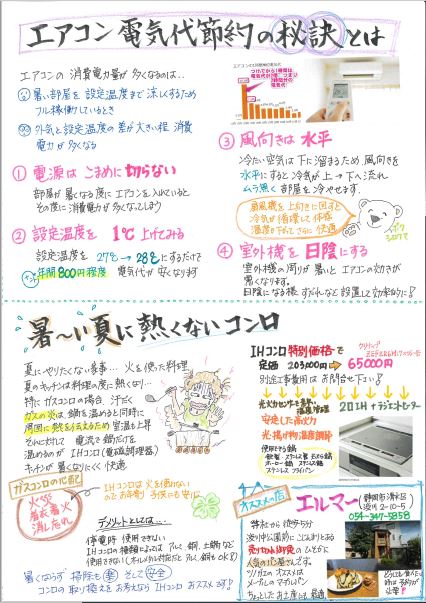 エアコン電気代節約の秘訣とは
エアコンの消費電力量が多くなるのは…
暑い部屋を設定温度まで涼しくするため
フル稼働しているとき
外気と設定温度の差が大きい程消費
電力が多くなる
① 電源はこまめに切らない
部屋が暑くなる度にエアコンを入れていると
その度に消費電力が多くなってしまう
② 設定温度を1℃上げてみる
設定温度を 27℃→28℃にするだけで
年間800円程度 電気代が安くなります
③ 風向きは水平
冷たい空気は下に溜まるため、風向きを
水平にすると冷気が上→下へ流れ
ムラ無く部屋を冷やせます。
扇風機を上向きに回すと
冷気が循環して体感
温度が下がってさらに快適
④ 室外機を日陰にする
室外機の周りが暑いとエアコンの効きが
悪くなります。
日陰になる様、すだれなど設置して効率的に!
暑〜い夏に熱くないコンロ
夏にやりたくない家事… 火を使った料理
夏のキッチンは料理の度に熱くなり…
特にガスコンロの場合、汗だく
ガスの火は鍋を温めると同時に
周囲に熱を伝えるため室温も上昇
それに対して 電流で鍋だけを
温めるのがIHコンロ(電磁調理器)
キッチンが暑くなりにくく快適
ガスコンロの心配
火事
着衣着火
消し忘れ
IHコンロは火を使わない
のでお年寄り、子供にも安心
デメリットとしては…
停電時 使用できない
IHコンロの種類によってはアルミ、銅、土鍋など
使用できない(オールメタル対応だとアルミ、銅もOK!)
暑くならず 掃除も楽 そして安全
コンロの取り換えをお考えならIHコンロおススメです!
IHコンロ特別価格で
定価 203,000円→65000円
別途工事費用はお問合せ下さい!
安定した高火力
光・揚げ物温度調節
2口IH+ラジエントヒーター
使用できる鍋
ホーロー鍋 ステンレス鍋
ステンレス フライパン
オススメの店
エルマー
(静岡市清水区
渋川2-10-5)
054-347-5858
弊社から徒歩5分
渋川中公園前にこじんまりとある
人気のパン屋さんです。